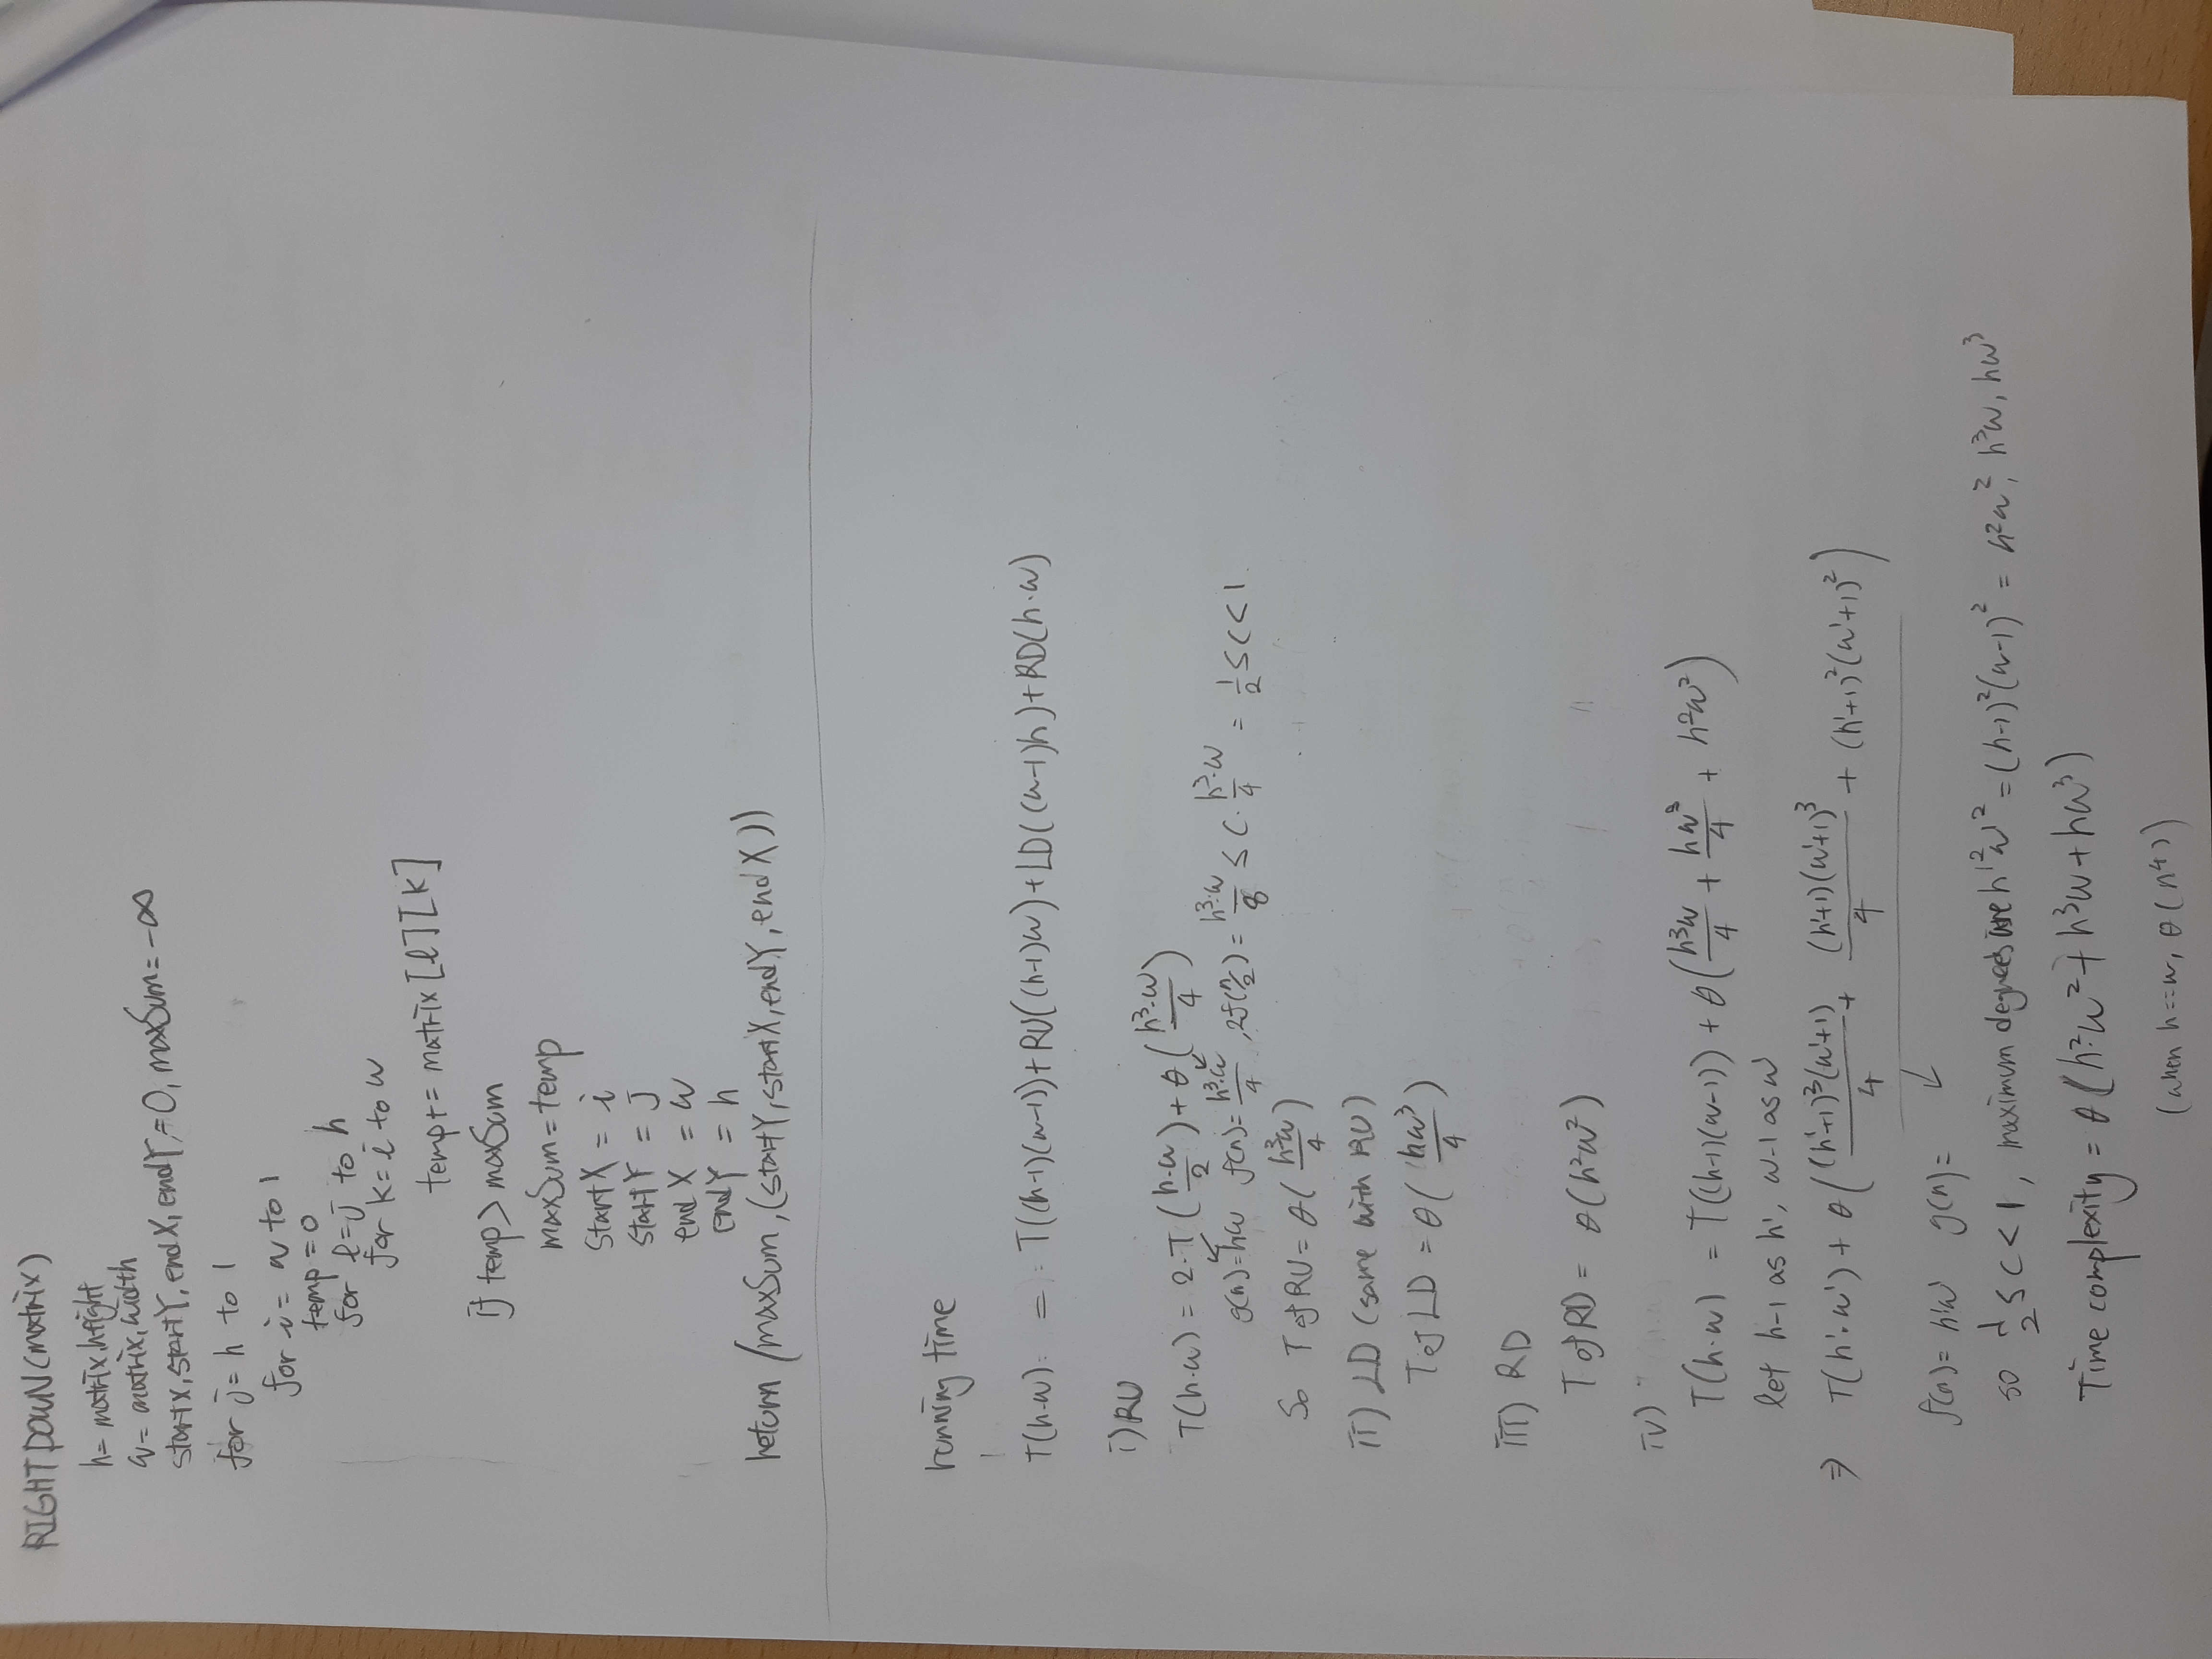 RIGHTDOWN(matrix)
h= matrix.height
w= matrix.width
startX, startY, endX, endY=0, maxSum=-∞
for j= h to 1
for i= w to 1
temp=0
for l=j to h
for k=i to w
temp+= matrix[l][k]
if temp> maxSum
maxSum=temp
startX = i
startY = j
end X = w
endY = h
return (maxSum,(startY,startX,endY,end X))
running time
T(h·w) = T((h-1)(w-1))+RU((h-1)w)+LD((w-1)h)+RD(h·w)
i) RU
T(h·w) = 2·T(h·w/2)+θ(h³·w/4)
g(n)=hw f(n)=h³·w/4, 2f(n/2)=h³·w/8 ≤ c·h³·w/4 = 1/2≤c<1
So T of RU=θ(h³w/4)
ii) LD (same with RU)
T of LD =θ(hw³/4)
iii) RD
T of RD = θ(h²w²)
iv)
T(h·w) = T((h-1)(w-1)) + θ(h³w/4 + hw³/4 + h²w²)
let h-1 as h', w-1 as w'
⇒ T(h'·w') + θ((h'+1)³(w'+1)/4 + (h'+1)(w'+1)³/4 + (h'+1)²(w'+1)²)
f(n)= h'w' g(n)= ↙
so 1/2≤c<1, maximum degrees are h'²w'²=(h-1)²(w-1)² = h²w², h³w, hw³
Time complexity = θ(h²w²+h³w+hw³)
(when h==w, θ(n⁴))